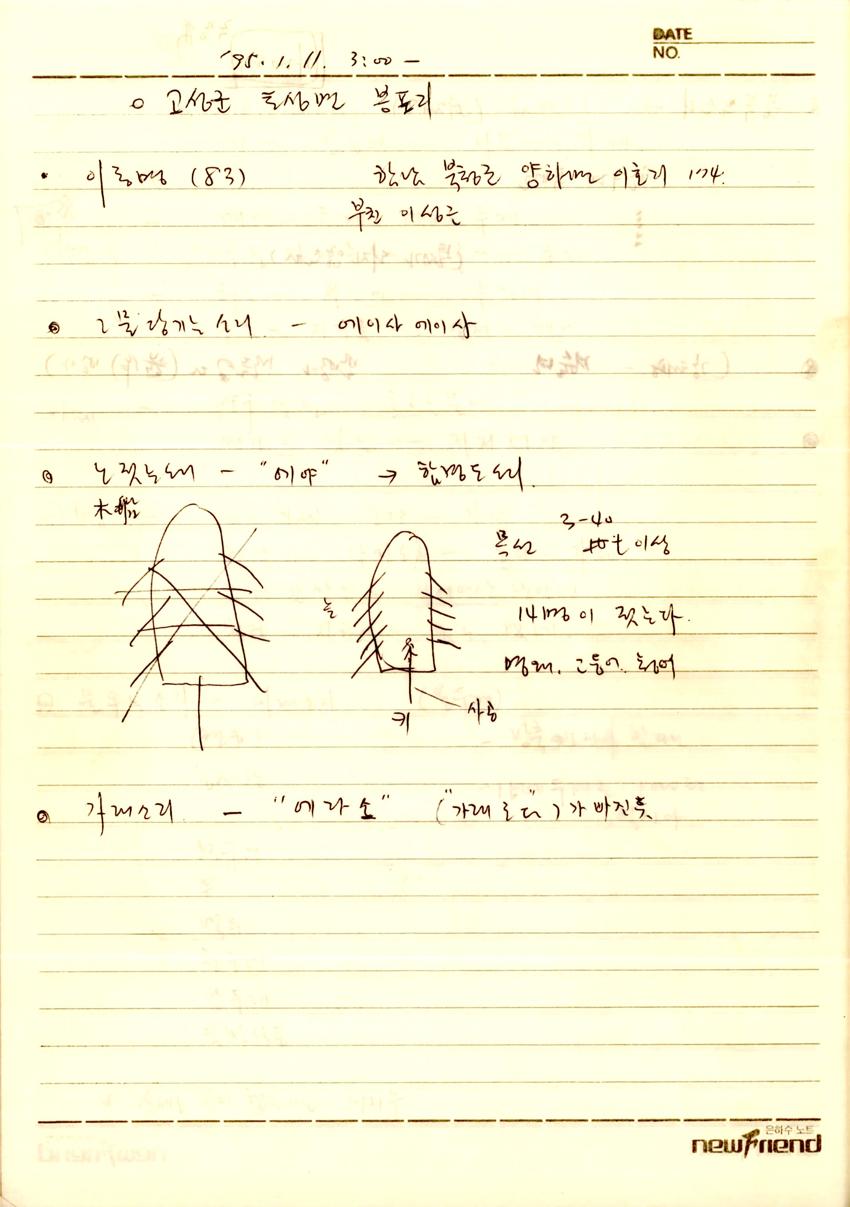 DATE
NO.
'95. 1. 11. 3:00 —
○ 고성군 토성면 봉포리
• 이 (83) 함남 북청군 양화면 이호리 174.
부친 이성근
◎ 그물당기는소리 — 에이사 에이사
◎ 노젓는소리 — "에야" → 합경도 소리.
木船
3-40
목선 이상
노
14명이 젓는다.
명태, 고등어, 청어
사공
키
◎ 가래소리 — "에라소" ("가래로다")가 빠진 듯
은하수 노트
newfriend